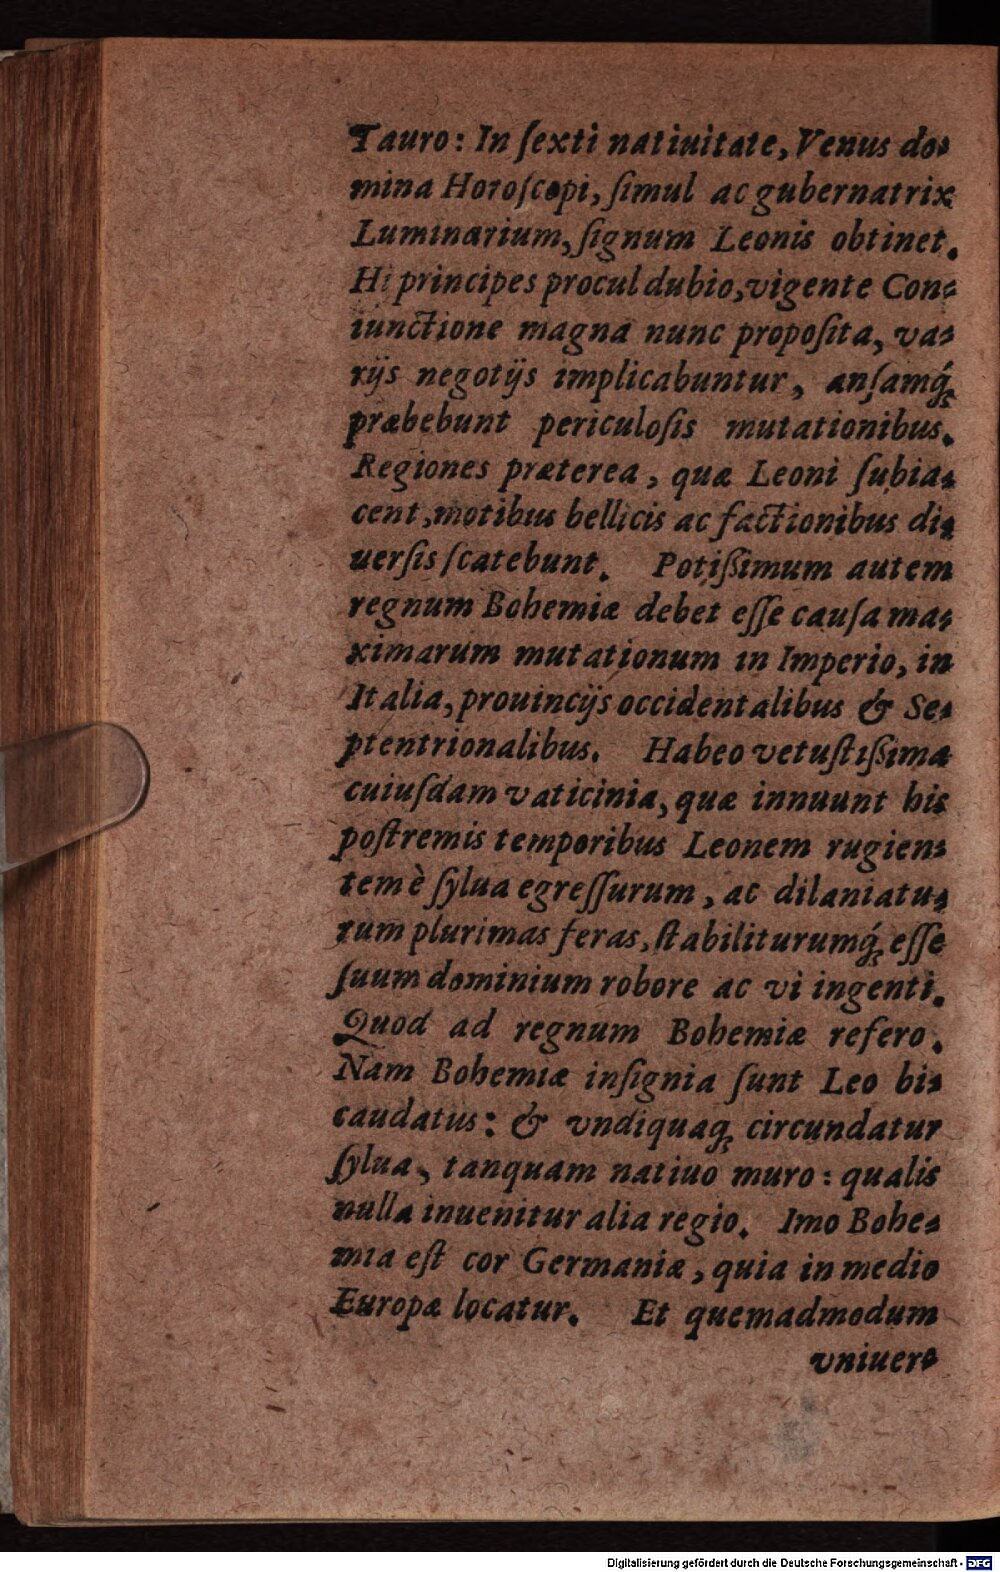 Tauro: In ſexti natiuitate, Venus do-
mina Horoſcopi, ſimul ac gubernatrix
Luminarium, ſignum Leonis obtinet.
Hi principes procul dubio, vigente Con-
iunctione magna nunc propoſita, va-
rijs negotijs implicabuntur, anſamq́;
præbebunt periculoſis mutationibus.
Regiones præterea, quæ Leoni ſubia-
cent, motibus bellicis ac factionibus di-
uerſis ſcatebunt. Potißimum autem
regnum Bohemiæ debet eſſe cauſa ma-
ximarum mutationum in Imperio, in
Italia, prouincijs occidentalibus & Se-
ptentrionalibus. Habeo vetuſtißima
cuiuſdam vaticinia, quæ innuunt his
poſtremis temporibus Leonem rugien-
tem è ſylua egreſſurum, ac dilaniatu-
rum plurimas feras, ſtabiliturumq́; eſſe
ſuum dominium robore ac vi ingenti.
Quod ad regnum Bohemiæ refero.
Nam Bohemiæ inſignia ſunt Leo bi-
caudatus: & vndiquaq; circundatur
ſylua, tanquam natiuo muro: qualis
nulla inuenitur alia regio. Imo Bohe-
mia eſt cor Germaniæ, quia in medio
Europæ locatur. Et quemadmodum
vniuer-
Digitalisierung gefördert durch die Deutsche Forschungsgemeinschaft - DFG